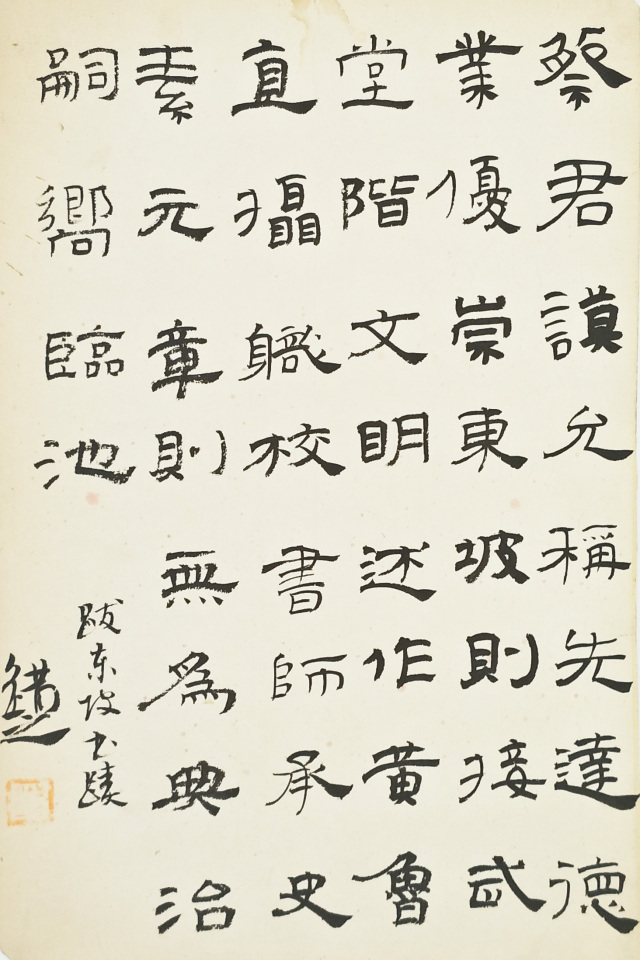 蔡君謨允稱先達德
業優崇東坡則接武
堂階文明述作黃魯
直攝職校書師承史
素元章則無為典治
嗣嚮臨池
跋东坡书蹟